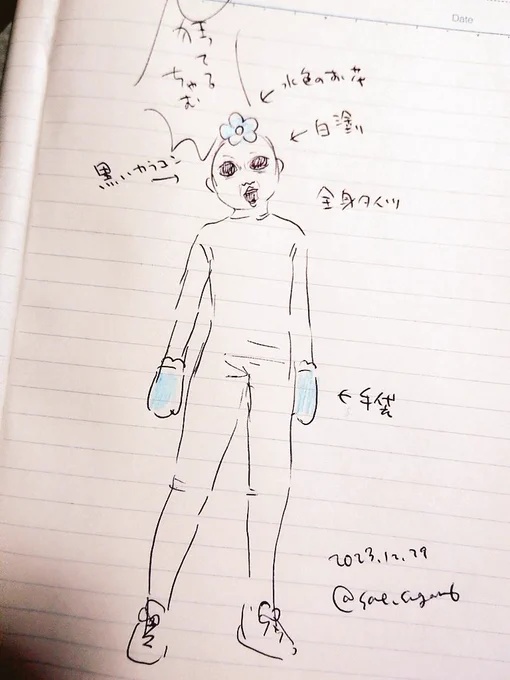 Date
ってる
ちゃむ
水色のお花
白塗り
黒いカラコン
全身タイツ
手袋
2023.12.29